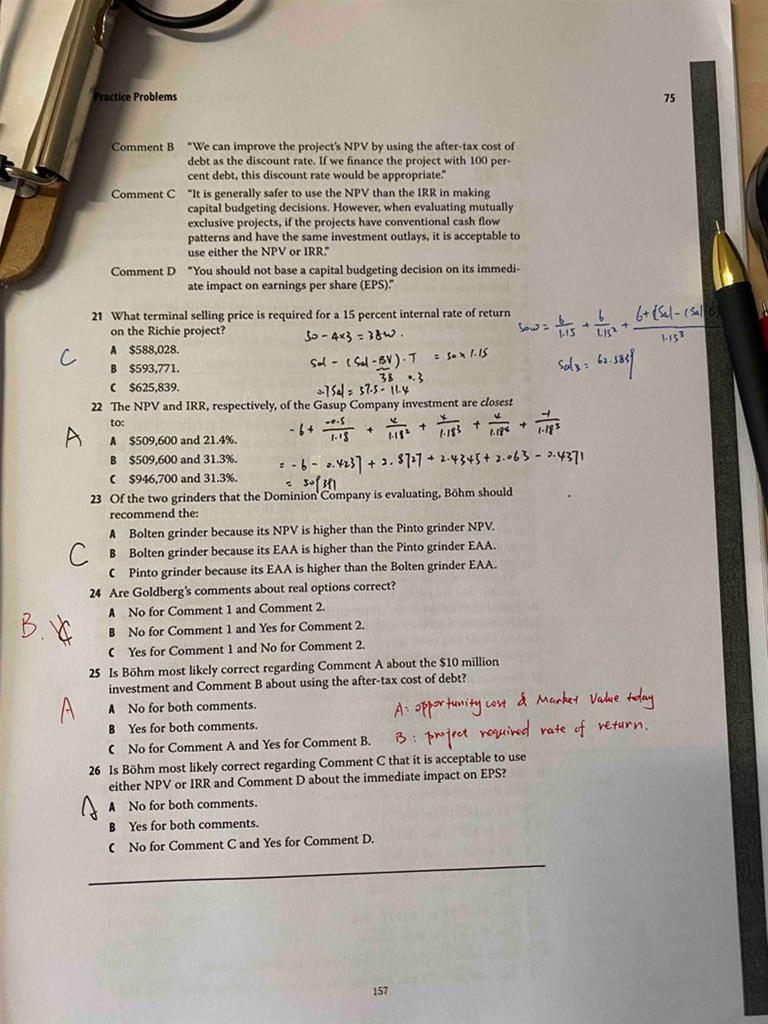 Practice Problems
75
Comment B "We can improve the project's NPV by using the after-tax cost of
debt as the discount rate. If we finance the project with 100 per-
cent debt, this discount rate would be appropriate."
Comment C "It is generally safer to use the NPV than the IRR in making
capital budgeting decisions. However, when evaluating mutually
exclusive projects, if the projects have conventional cash flow
patterns and have the same investment outlays, it is acceptable to
use either the NPV or IRR."
Comment D "You should not base a capital budgeting decision on its immedi-
ate impact on earnings per share (EPS)."
21 What terminal selling price is required for a 15 percent internal rate of return
on the Richie project?
C
A $588,028.
B $593,771.
C $625,839.
50 - 4×3 = 38w.
Sal - (Sal-BV) · T = 50 × 1.15
38 0.3
0.7Sal = 57.5 - 11.4
50w = 6/1.15 + 6/1.15² + 6+(Sal-(Sal-/1.15³
Sal3 = 62.5839
22 The NPV and IRR, respectively, of the Gasup Company investment are closest
to:
A
A $509,600 and 21.4%.
B $509,600 and 31.3%.
C $946,700 and 31.3%.
-6 + -0.5/1.18 + 4/1.18² + 4/1.18³ + 4/1.18⁴ + -1/1.18⁵
= -6 - 0.4237 + 2.8727 + 2.4345 + 2.063 - 0.4371
23 Of the two grinders that the Dominion Company is evaluating, Böhm should
recommend the:
C
A Bolten grinder because its NPV is higher than the Pinto grinder NPV.
B Bolten grinder because its EAA is higher than the Pinto grinder EAA.
C Pinto grinder because its EAA is higher than the Bolten grinder EAA.
24 Are Goldberg's comments about real options correct?
B.
A No for Comment 1 and Comment 2.
B No for Comment 1 and Yes for Comment 2.
C Yes for Comment 1 and No for Comment 2.
25 Is Böhm most likely correct regarding Comment A about the $10 million
investment and Comment B about using the after-tax cost of debt?
A
A No for both comments.
B Yes for both comments.
C No for Comment A and Yes for Comment B.
A: opportunity cost & Market Value today
B: project required rate of return.
26 Is Böhm most likely correct regarding Comment C that it is acceptable to use
either NPV or IRR and Comment D about the immediate impact on EPS?
A
A No for both comments.
B Yes for both comments.
C No for Comment C and Yes for Comment D.
157